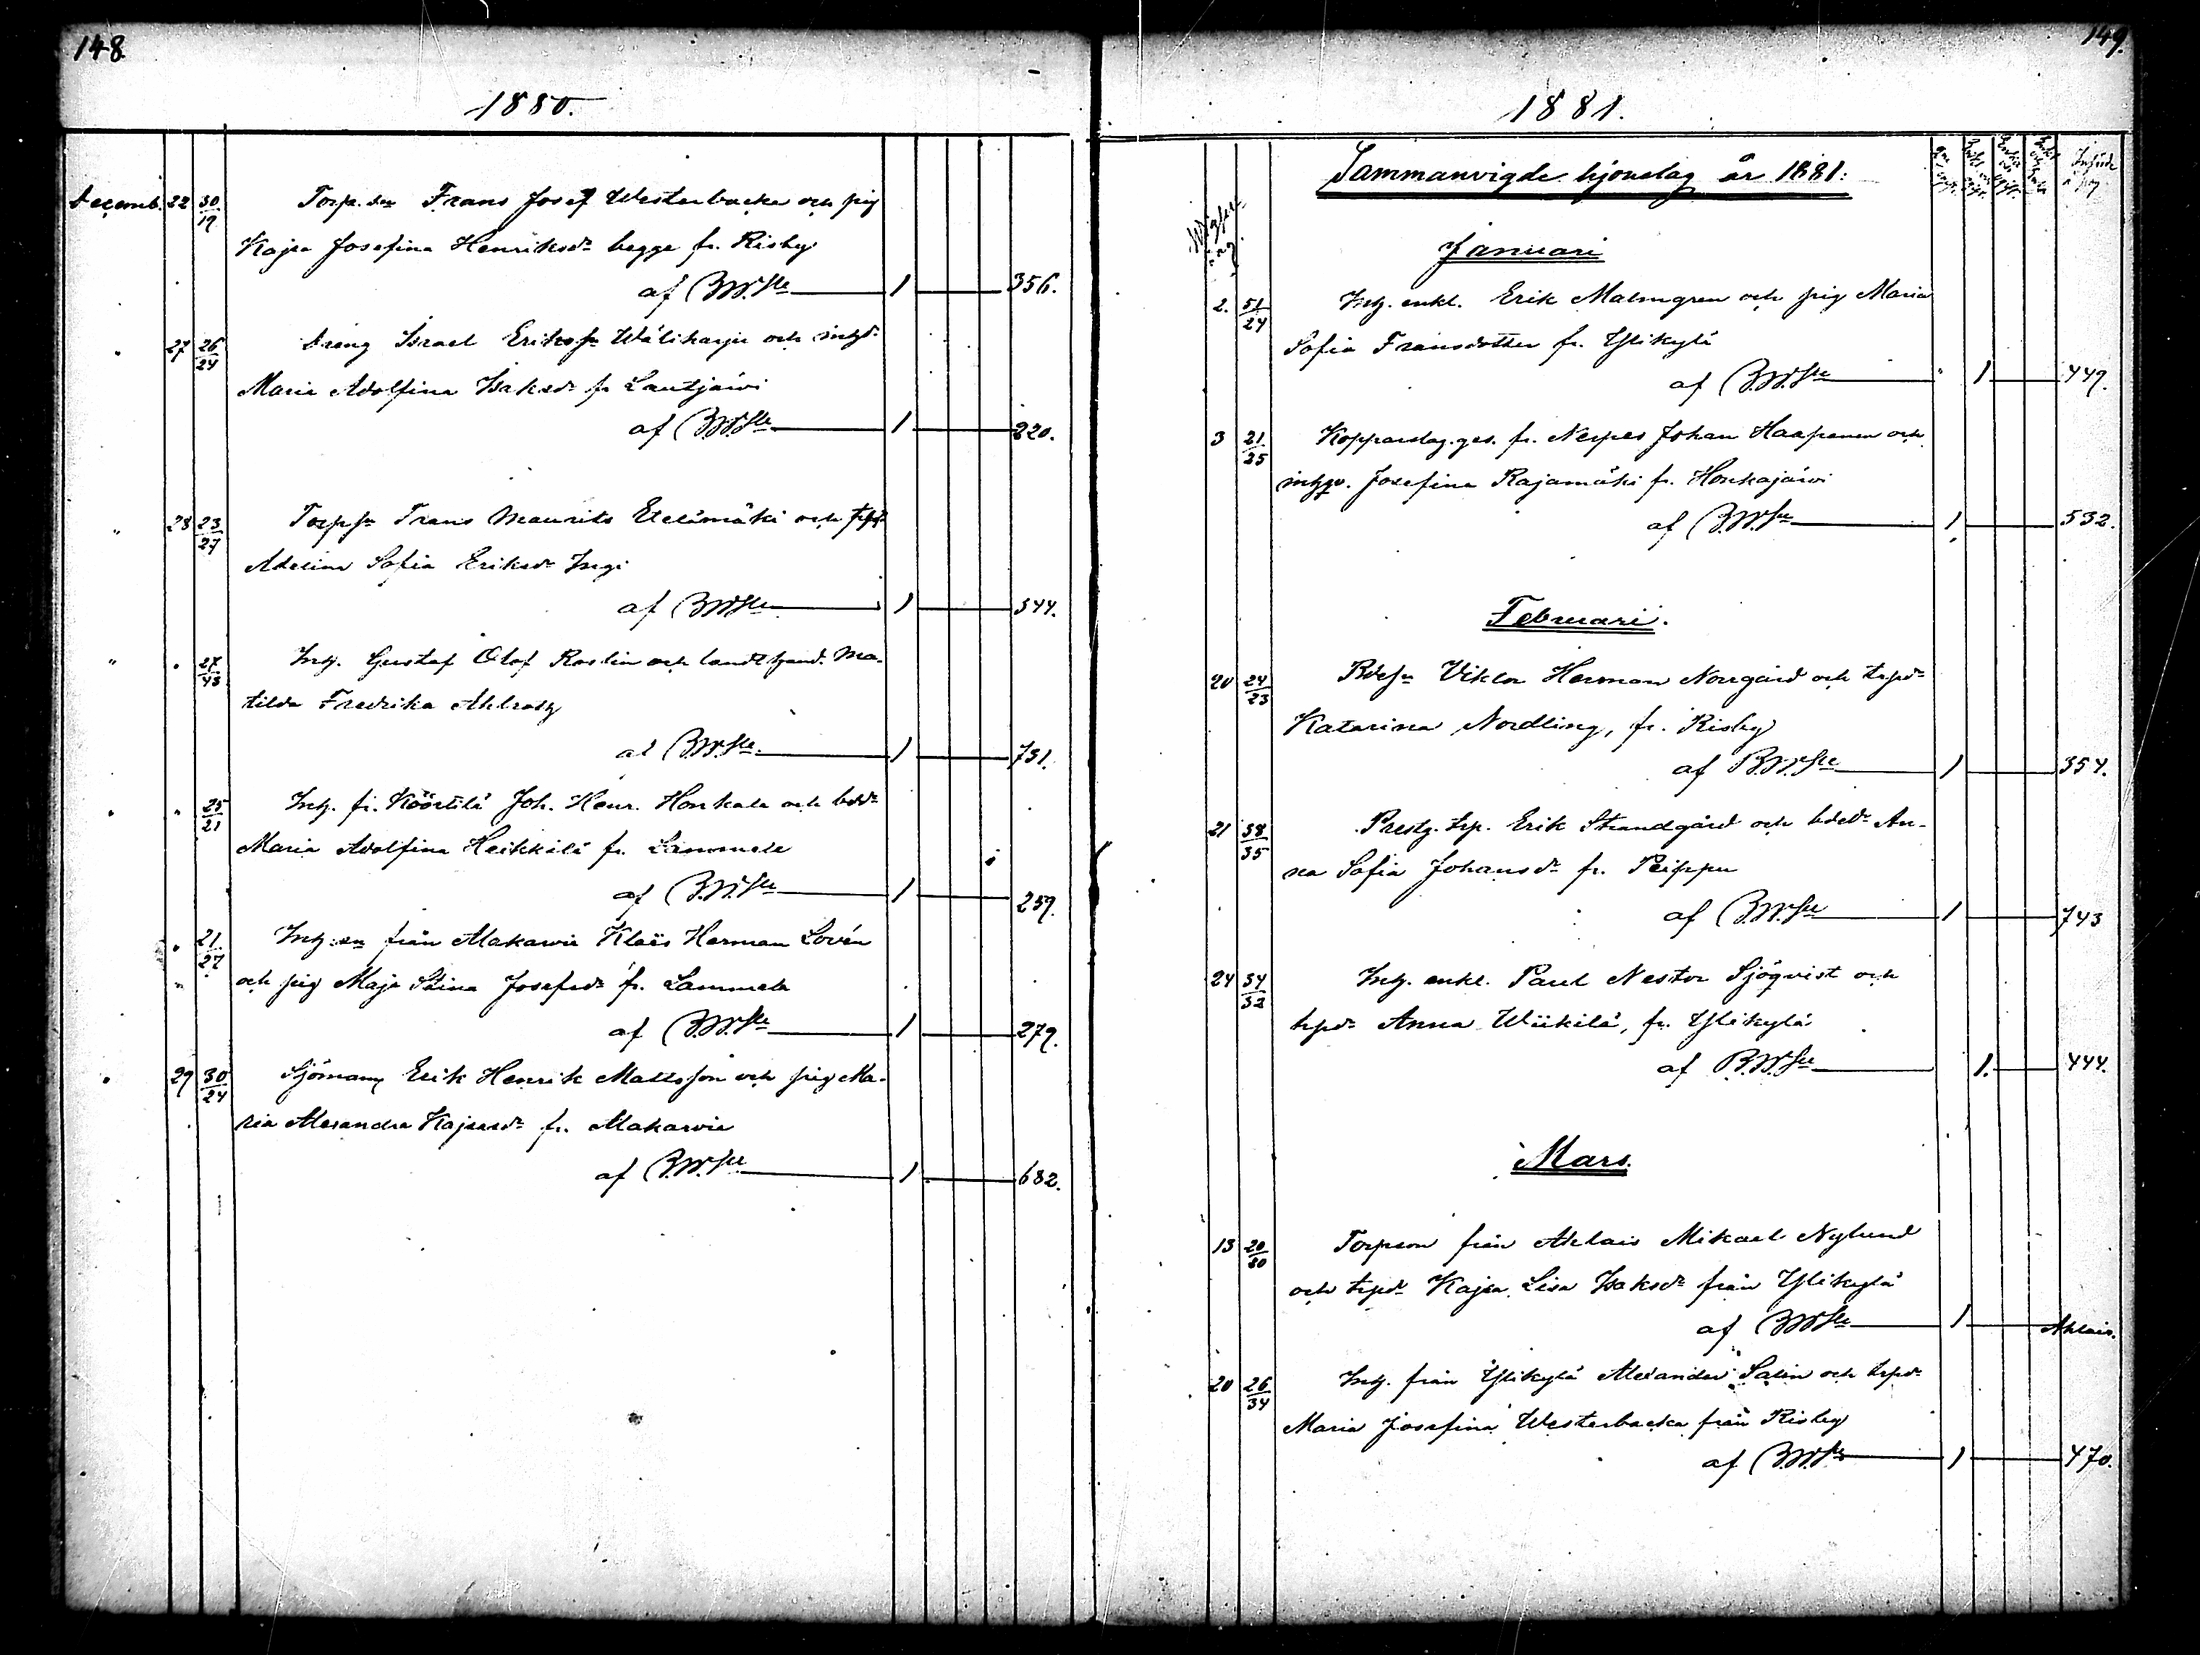 148
1880.
Decemb. 22 30/19 Torp. sn Frans Josef Westerbacka och pig
Kajsa Josefina Henriksdr begge fr. Risby
af 1 356.
27 26/24 dreng Israel Eriksson Wäliharju och inhyd.
Maria Adolfina Isaksdr fr Lautjärvi
af 1 220.
28 23/27 Torpsn Frans Maurits Etelämäki och
Adelina Sofia Eriksdr
af 1 344.
27/43 Inh. Gustaf Olof Roslin och landthand. Ma-
tilda Fredrika
af 1 731.
25/21 Inh. fr. Köörtilä Joh. Henr. Honkala och bdr
Maria Adolfina Heikkilä fr. Lammela
af 1 239.
21/27 Inh. sn från Makarvia Klaës Herman Lovén
och pig Maja Stina Josefsdr fr. Lammela
af 1 279.
29 30/24 Sjöman Erik Henrik Mattsson och pig Ma-
ria Alexandra Kajsasdr fr. Makarvia
af 1 682.
149.
1881.
Sammanvigde hjonelag år 1881.
Januari
2. 51/24 Inh. enkl. Erik Malmgren och pig Maria
Sofia Fransdotter fr. Ylikylä
af 1 449.
3 21/25 Kopparslag. ges. fr. Nerpes Johan Haapanen och
inhqv. Josefina Rajamäki fr. Honkajärvi
af 1 532.
Februari.
20 24/23 Bdesn Viktor Herman Norrgård och torpdr
Katarina Nordling, fr. Risby
af 1 354.
21 38/35 Prestg. trp. Erik Strandgård och bdedr An-
na Sofia Johansdr fr. Peippu
af 1 743
24 34/32 Inh. enkl. Paul Nestor Sjöqvist och
trpdr Anna Wiikilä, fr. Ylikylä
af 1. 444.
Mars.
13 20/20 Torpson från Ahlais Mikael Nylund
och trpdr Kajsa Lisa Isaksdr från Ylikylä
af 1 Ahlais.
20 26/34 Inh. från Ylikylä Alexander Salin och trpdr
Maria Josefina Westerbacka från Risby
af 1 470.